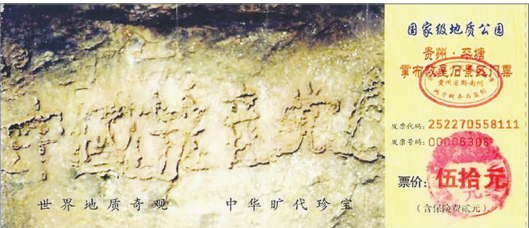 中国共产党
世界地质奇观 中华旷代珍宝
国家级地质公园
贵州·平塘
掌布 景区门票
贵州省黔南州
发票代码：252270558111
发票号码：00006306
票价：伍拾元
（含保险费贰元）